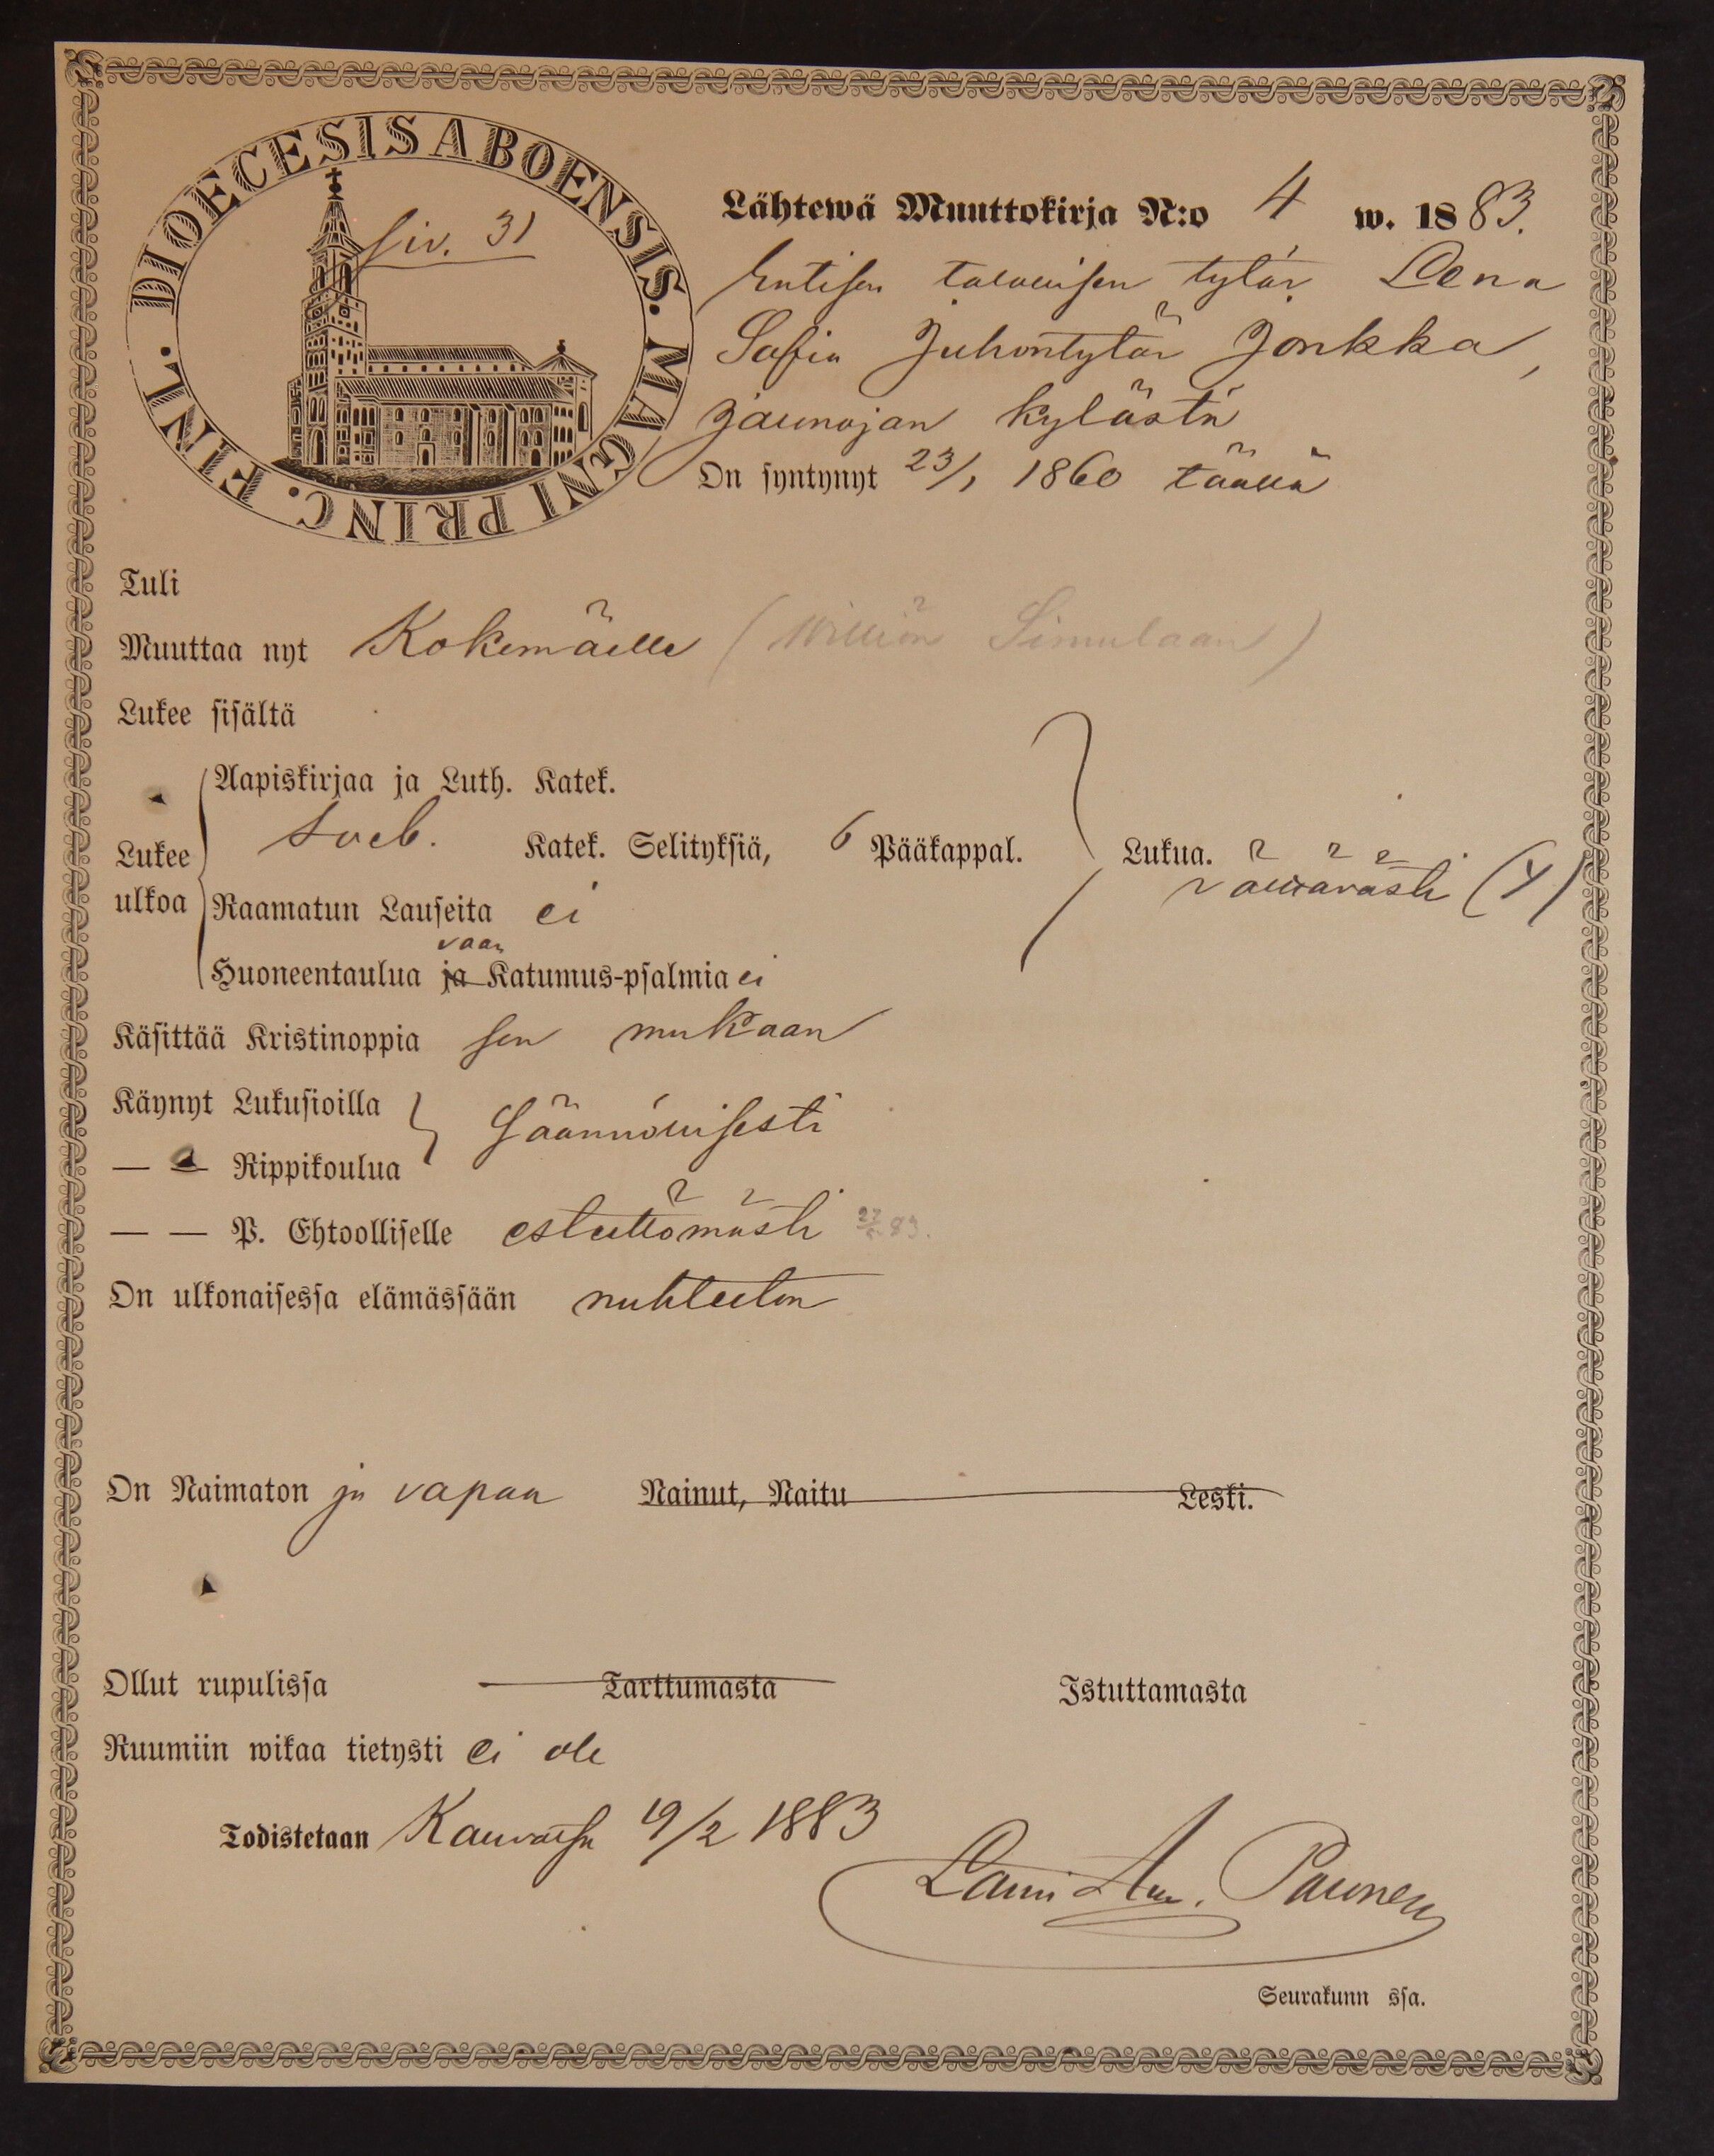 DIOECESIS ABOENSIS. MAGNI PRINC. FINL.
Siv. 31
Lähtewä Muuttokirja N:o 4 w. 1883.
Entisen talollisen tytär Lena
Sofia Juhontytär Jonkka,
Jaunojan kylästä
On syntynyt 23/1 1860 täällä
Tuli
Muuttaa nyt Kokemäelle (Williön Simulaan)
Lukee sisältä
Aapiskirjaa ja Luth. Katek.
Lukee ulkoa Sveb. Katek. Selityksiä, 6 Pääkappal. Lukua.
vaarävästi (4)
Raamatun Lauseita ei
vaan
Huoneentaulua ja Katumus-psalmia ei
Käsittää Kristinoppia sen mukaan
Käynyt Lukusioilla
säännöllisesti
— — Rippikoulua
— — P. Ehtoolliselle esteettömästi 83.
On ulkonaisessa elämässään nuhteeton
On Naimaton ja vapaa Nainut, Naitu Leski.
Ollut rupulissa Tarttumasta Istuttamasta
Ruumiin wikaa tietysti ei ole
Todistetaan Kauvatsa 19/2 1883
Lauri Paunen
Seurakunn ssa.